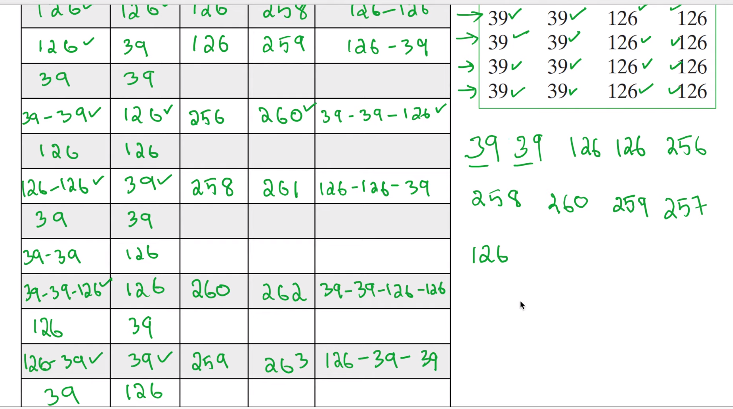 126✓ 126✓ 126 258 126-126
126✓ 39 126 259 126-39
39 39
39-39✓ 126✓ 256 260✓ 39-39-126✓
126 126
126-126✓ 39✓ 258 261 126-126-39
39 39
39-39 126
39-39-126✓ 126 260 262 39-39-126-126
126 39
126-39✓ 39✓ 259 263 126-39-39
39 126
→ 39✓ 39✓ 126✓ ✓126
→ 39✓ 39✓ 126✓ ✓126
→ 39✓ 39✓ 126✓ ✓126
→ 39✓ 39✓ 126✓ ✓126
39 39 126 126 256
258 260 259 257
126